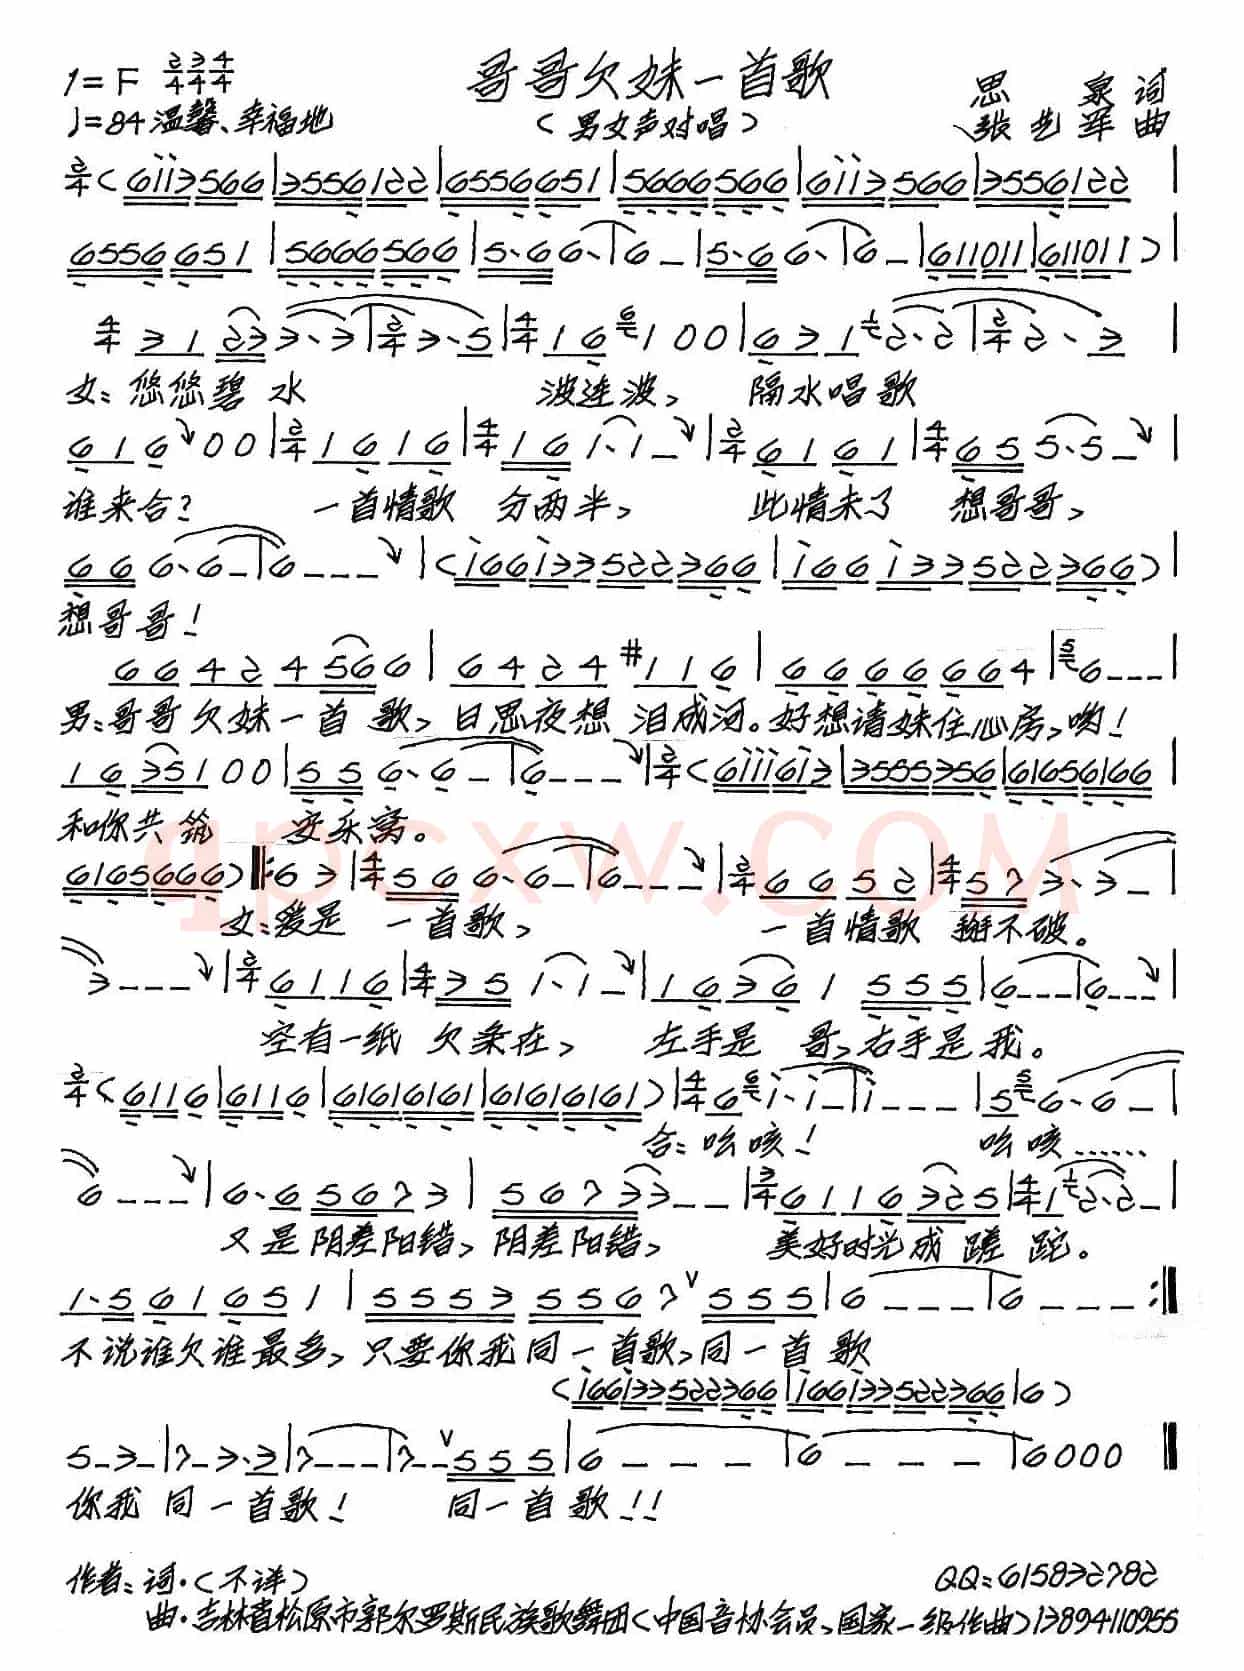 哥哥欠妹一首歌
1=F 2/4 3/4 4/4
思泉 词
♩=84 温馨、幸福地
(男女声对唱)
张艺军 曲
2/4 (6i i3566|3556122|6556651|5666566|6i i3566|3556122|
6556651|5666566|5·66·|6–|5·66·|6–|611011|611011)|
4/4 31233·3|2/4 3·5|4/4 16 1 0 0|63 1 2·2|2/4 2·3|
女:悠悠碧水 波连波, 隔水唱歌
616 0 0|2/4 1616|4/4 16 1·1–|2/4 6161|4/4 65 5·5–|
谁来合? 一首情歌 分两半, 此情未了 想哥哥,
66 6·6–|6–––|(i66i33522366|i66i33522366)|
想哥哥!
66424566|6424 #116|66666664|6–––|
男:哥哥欠妹一首歌,日思夜想 泪成河。好想请妹住心房,哟!
1635100|55 6·6–|6–––|2/4 (6i i i6i3|3555356|61656166|
和你共筑 安乐窝。
qpcxw.COM
6165666)‖:63|4/4 56 6·6–|6–––|2/4 6652|4/4 57 3·3–|
女:爱是 一首歌, 一首情歌 掰不破。
3–––|2/4 6116|4/4 35 1·1–|1636 1 555|6–––|6–––|
空有一纸 欠条在, 左手是 哥,右手是我。
2/4 (6116|6116|61616161|61616161)|4/4 6 i·i–|i–––|5 6·6–|
合:吆咳! 吆咳……
6–––|6·65673|56733––|3/4 6116325|4/4 1 2·2–|
又是阴差阳错,阴差阳错, 美好时光成蹉跎。
1·561651|55535567 ∨555|6–––|6–––:‖
不说谁欠谁最多,只要你我同一首歌,同一首歌
(i66i33522366|i66i33522366|6)
5–3–|7–3·3|7–––|7––∨555|6–––|6–––|6000‖
你我 同一首歌! 同一首歌!!
作者:词·(不详)
QQ:615832782
曲·吉林省松原市郭尔罗斯民族歌舞团(中国音协会员,国家一级作曲)13894110955